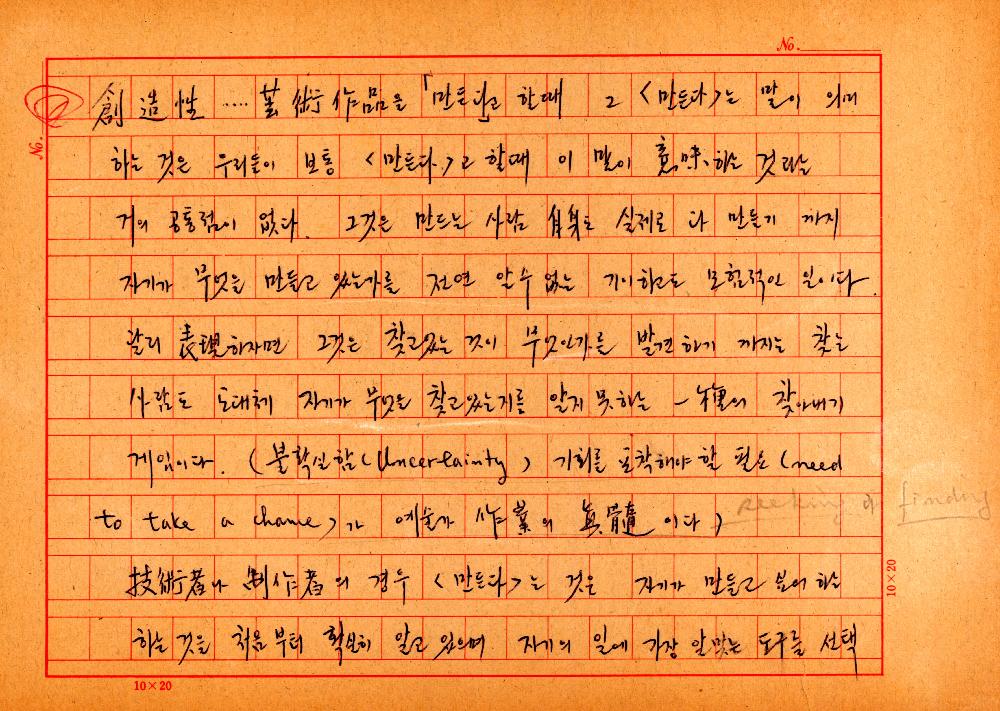 No.
No.
創造性 ····· 芸術作品을 「만든다」고 할때 그 <만든다>는 말이 의미
하는 것은 우리들이 보통 <만든다>고 할때 이 말이 意味하는 것과는
거의 공통점이 없다. 그것은 만드는 사람 自身도 실제로 다 만들기 까지
자기가 무엇을 만들고 있는가를 전연 알수 없는 기이하고도 모험적인 일이다.
달리 表現하자면 그것은 찾고있는 것이 무엇인가를 발견하기 까지는 찾는
사람도 도대체 자기가 무엇을 찾고있는지를 알지 못하는 一種의 찾아내기
게임이다. (불확실함(Uncertainty) 기회를 포착해야 할 필요(need
to take a chance)가 예술가 作業의 真髓이다) seeking 과 finding
技術者나 制作者의 경우 <만든다>는 것은 자기가 만들고 하는
하는 것을 처음부터 확실히 알고 있으며 자기의 일에 가장 알맞는 도구를 선택
10×20
10×20